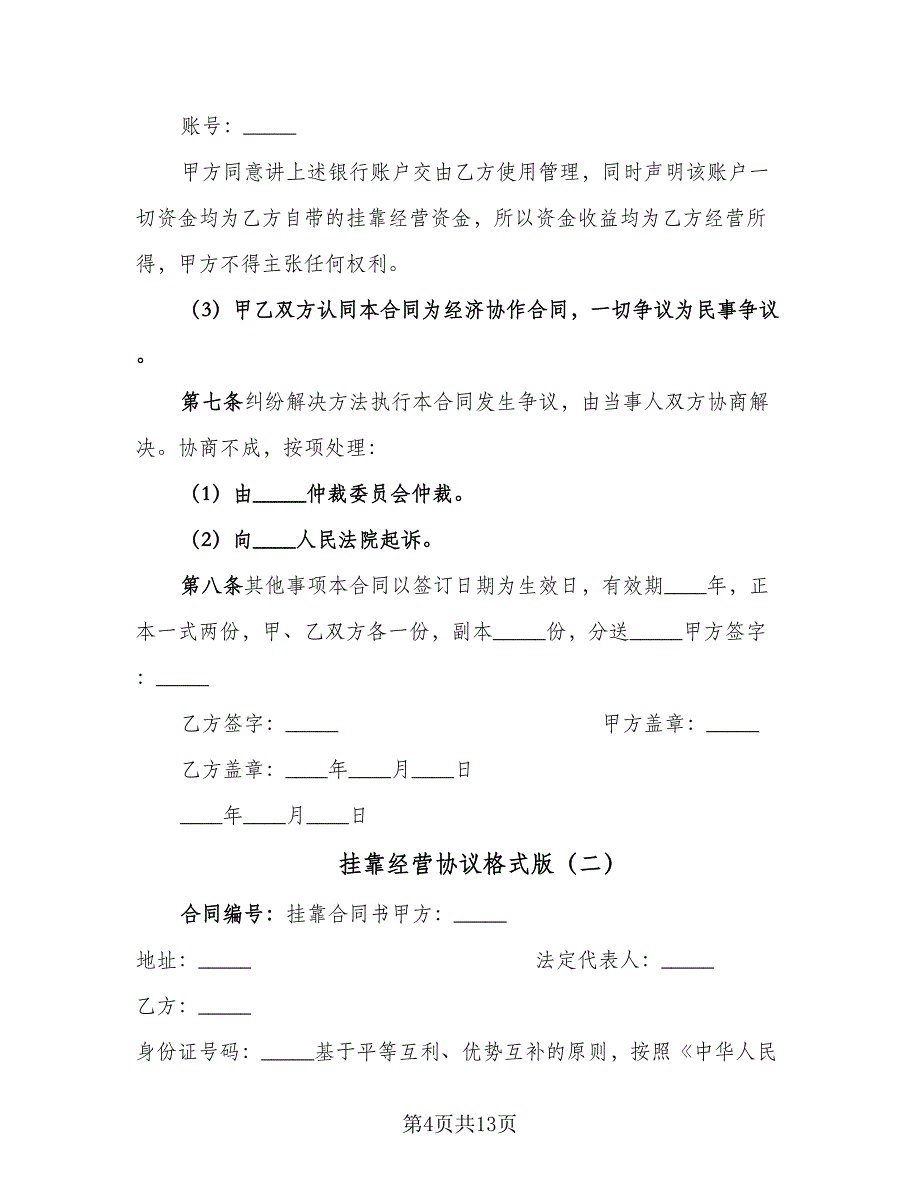 账号：_____
甲方同意讲上述银行账户交由乙方使用管理，同时声明该账户一
切资金均为乙方自带的挂靠经营资金，所以资金收益均为乙方经营所
得，甲方不得主张任何权利。
（3）甲乙双方认同本合同为经济协作合同，一切争议为民事争议
。
第七条纠纷解决方法执行本合同发生争议，由当事人双方协商解
决。协商不成，按项处理：
（1）由_____仲裁委员会仲裁。
（2）向____人民法院起诉。
第八条其他事项本合同以签订日期为生效日，有效期____年，正
本一式两份，甲、乙双方各一份，副本_____份，分送_____甲方签字
：_____
乙方签字：_____ 甲方盖章：_____
乙方盖章：____年____月____日
____年____月____日
挂靠经营协议格式版（二）
合同编号：挂靠合同书甲方：_____
地址：_____ 法定代表人：_____
乙方：_____
身份证号码：_____基于平等互利、优势互补的原则，按照《中华人民
第4页共13页